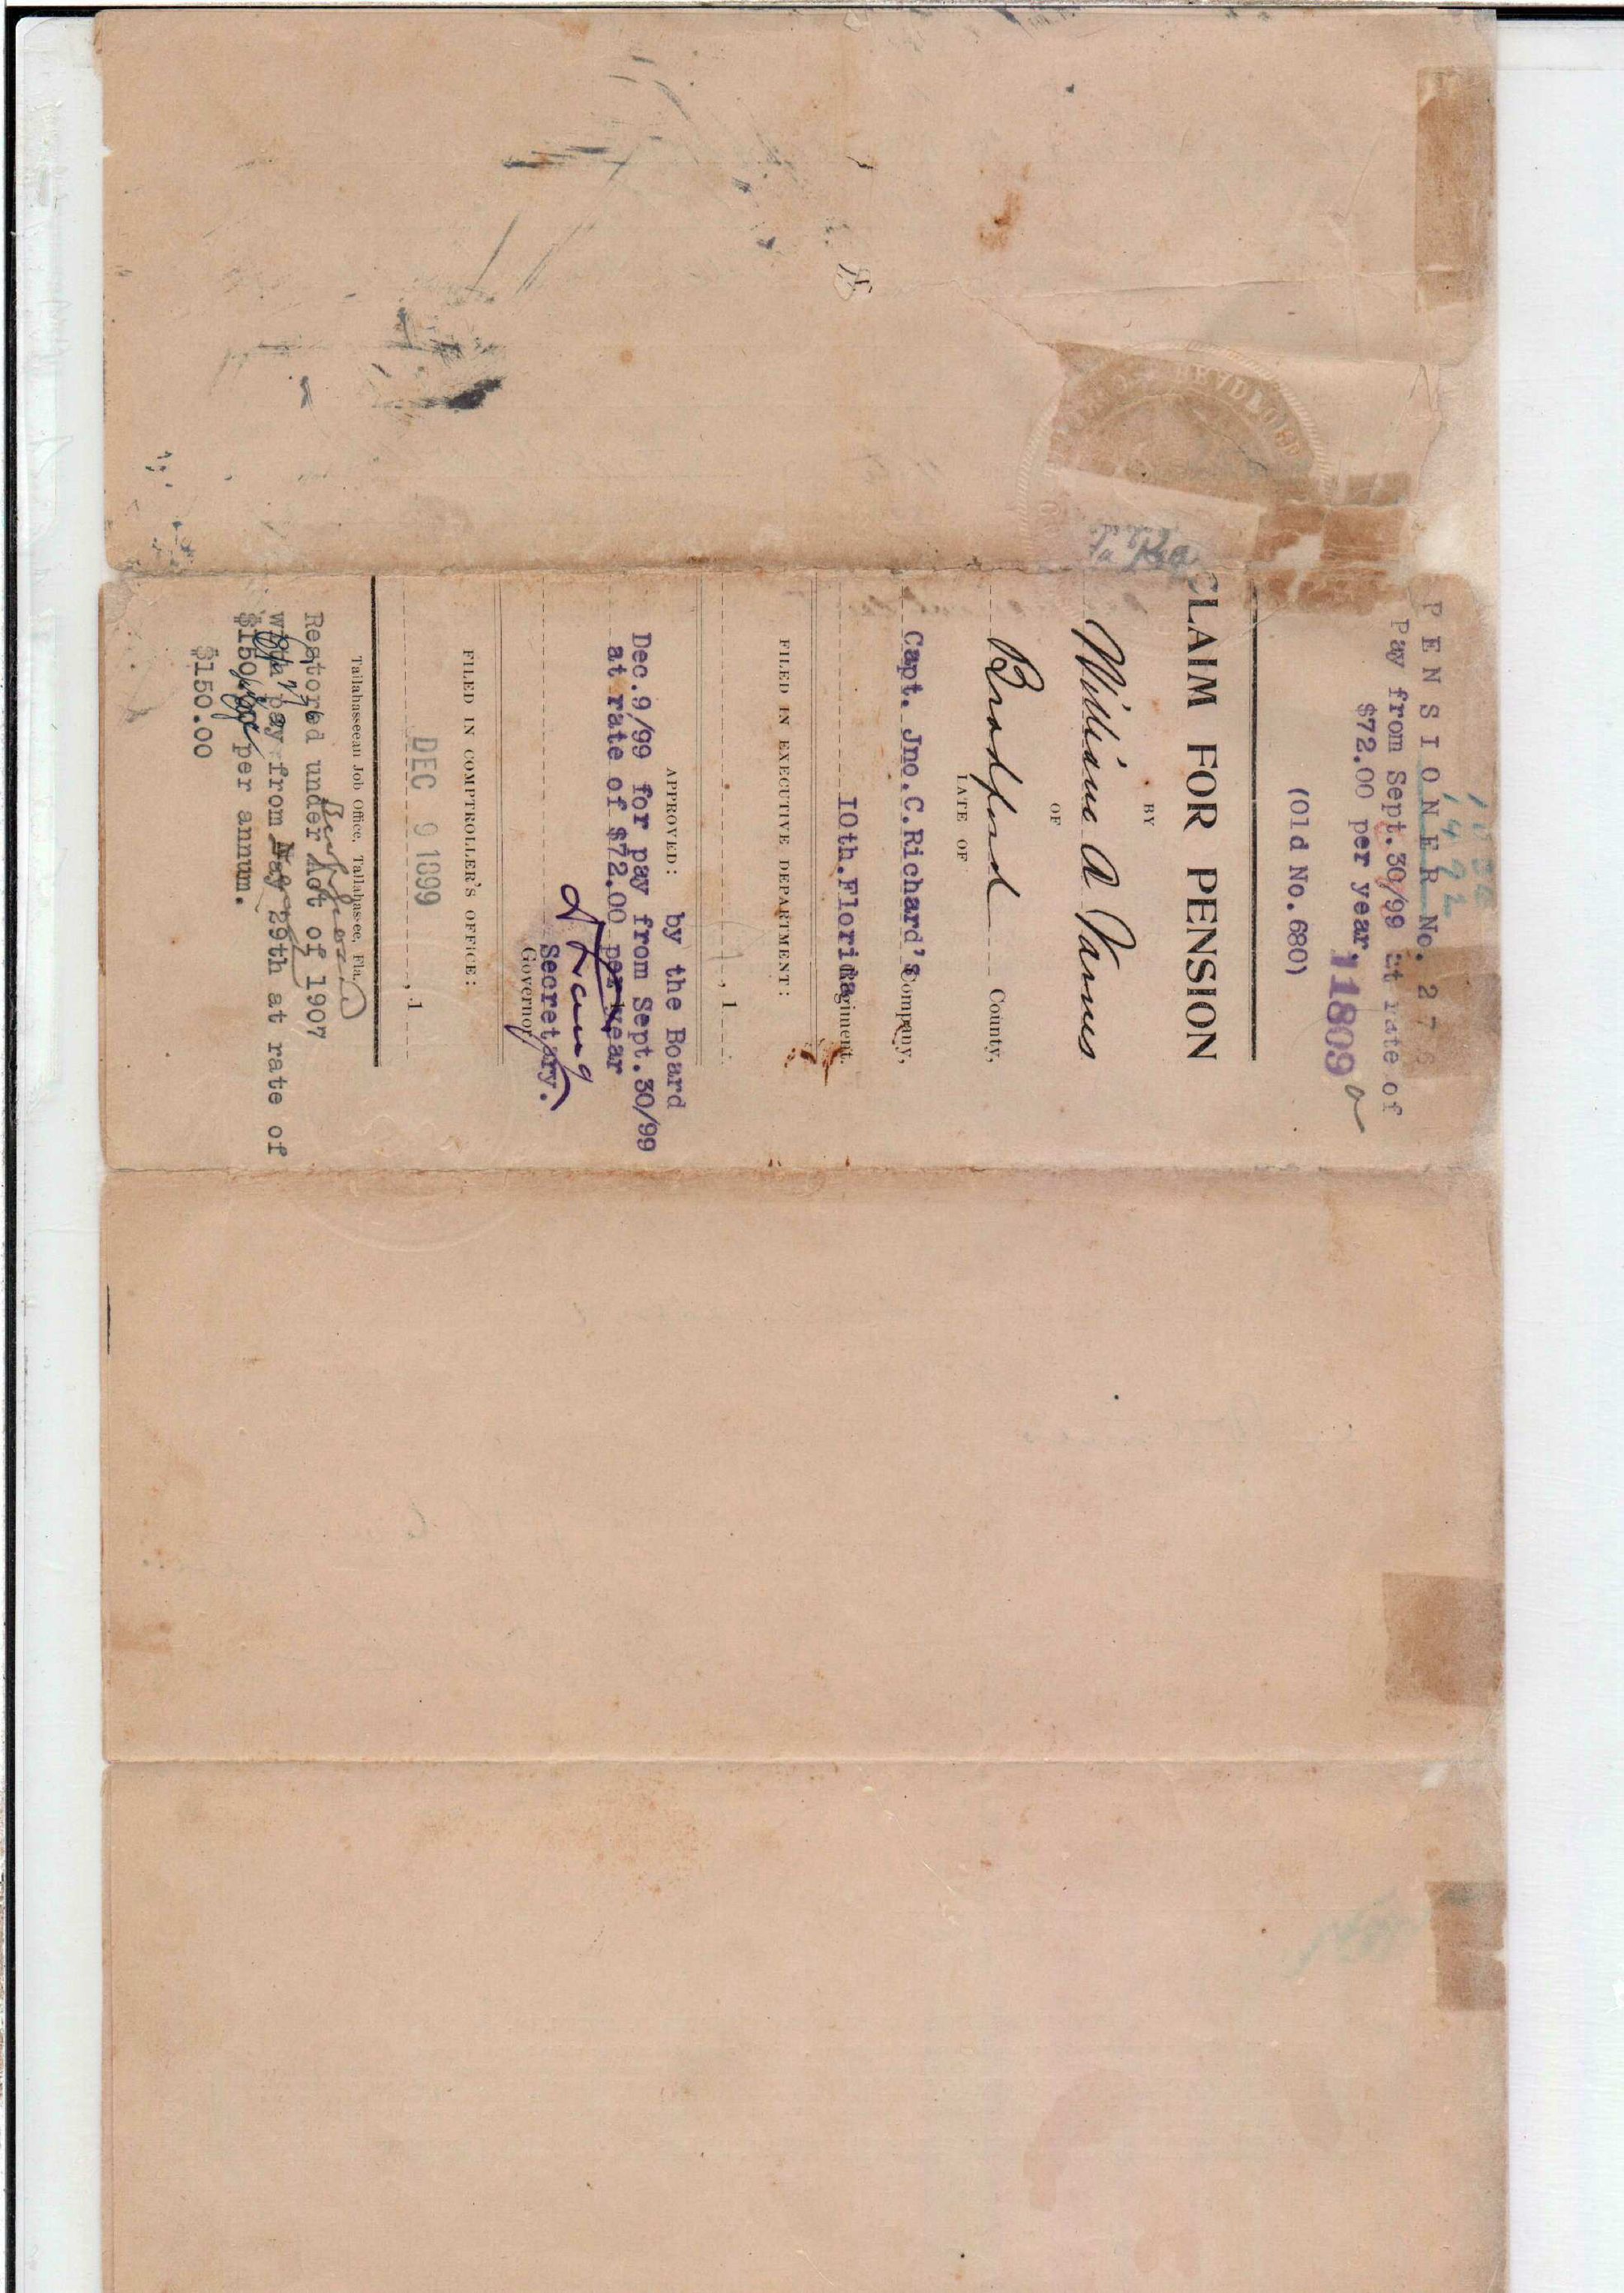 PENSIONER No. 27
Pay from Sept.30/99 at rate of
$72.00 per year.
11809
(Old No.680)
CLAIM FOR PENSION
BY
William A
OF
Bradford County,
LATE OF
Capt. Jno.C.Richard's Company,
10th.Florida Regiment.
FILED IN EXECUTIVE DEPARTMENT:
, 1
APPROVED: by the Board
Dec.9/99 for pay from Sept.30/99
at rate of $72.00 per year
Secretary.
Governor
FILED IN COMPTROLLER'S OFFICE:
DEC 9 1899
, 1
Tallahasseean Job Office, Tallahassee, Fla.
Restored under Act of 1907
with pay from May 29th at rate of
$150.00 per annum.
$150.00